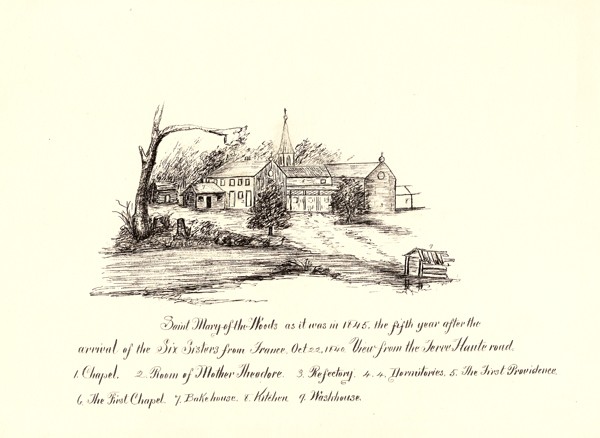 Saint Mary-of-the-Woods as it was in 1845. the fifth year after the
arrival of the Six Sisters from France, Oct. 22, 1840. View from the Terre Haute road.
1. Chapel. 2. Room of Mother Theodore. 3. Refectory. 4-4. Dormitories. 5. The First Providence.
6. The First Chapel. 7. Bakehouse. 8. Kitchen 9. Washhouse.